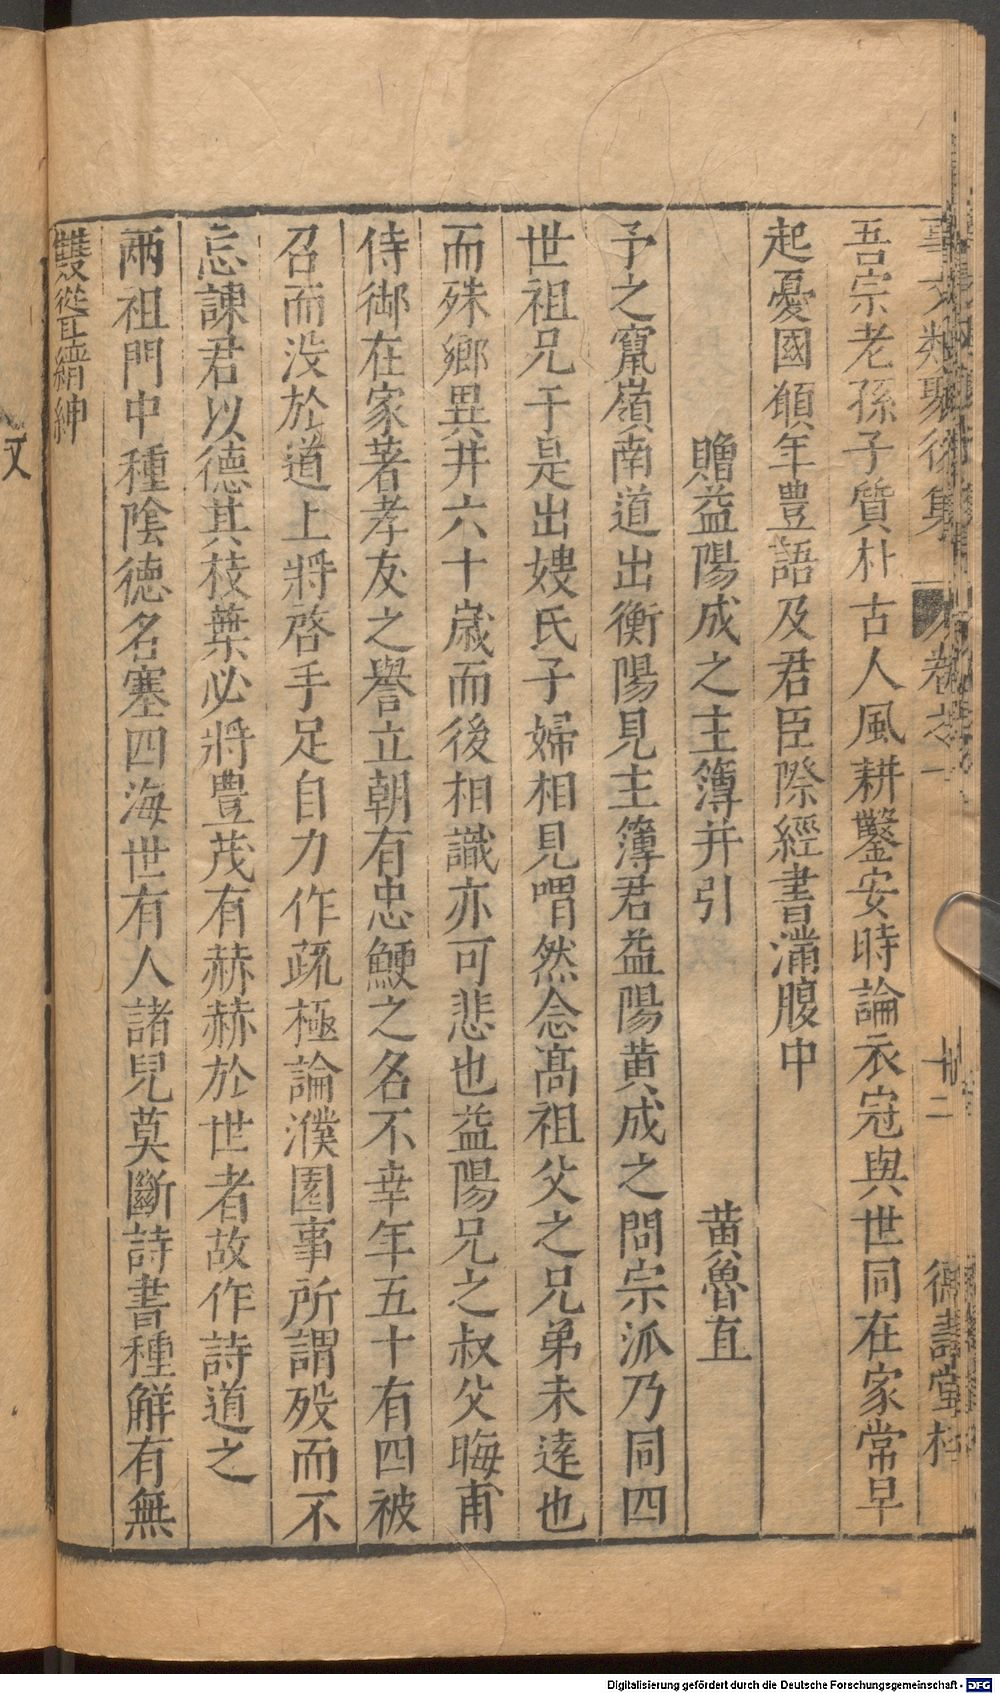 事文類聚後集 卷之一 十二 德壽堂梓
吾宗老孫子質朴古人風耕鑿安時論衣冠與世同在家常早
起憂國願年豊語及君臣際經書滿腹中
贈益陽成之主簿并引 黄魯直
予之竄嶺南道出衡陽見主簿君益陽黄成之問宗派乃同四
世祖兄于是出嫂氏子婦相見喟然念髙祖父之兄弟未逺也
而殊鄉異井六十歳而後相識亦可悲也益陽兄之叔父晦甫
侍御在家著孝友之譽立朝有忠鯁之名不幸年五十有四被
召而没於道上將啓手足自力作疏極論濮園事所謂殁而不
忘諫君以德其枝葉必將豊茂有赫赫於世者故作詩道之
兩祖門中種隂徳名塞四海世有人諸兒莫斷詩書種解有無
雙從縉紳
文
Digitalisierung gefördert durch die Deutsche Forschungsgemeinschaft - DFG